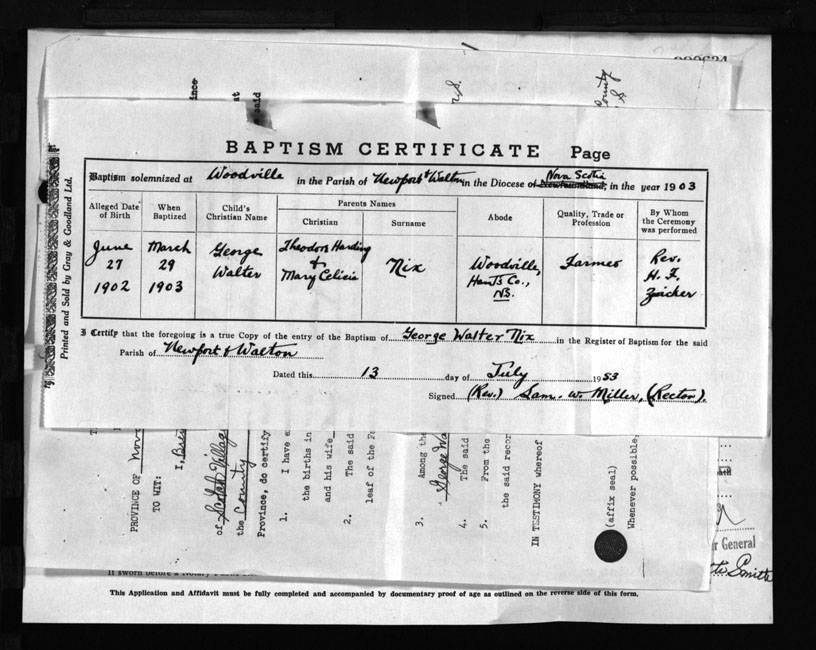 BAPTISM CERTIFICATE Page
Baptism solemnized at Woodville in the Parish of Newport & Walton in the Diocese of Newfoundland, Nova Scotia in the year 1903
Alleged Date of Birth
When Baptized
Child's Christian Name
Parents Names
Christian
Surname
Abode
Quality, Trade or Profession
By Whom the Ceremony was performed
June 27 1902
March 29 1903
George Walter
Theodore Harding & Mary Celicia
Nix
Woodville, Hants Co., NS.
Farmer
Rev. H. F. Zwicker
I Certify that the foregoing is a true Copy of the entry of the Baptism of George Walter Nix in the Register of Baptism for the said
Parish of Newport & Walton
Dated this 13 day of July 1953
Signed (Rev.) Sam. W. Miller, (Rector).
Printed and Sold by Gray & Goodland Ltd.
PROVINCE OF Nova
TO WIT:
I,
of Scotch Village
the County
Province, do certify
1. I have e
the births in
and his wife
2. The said
leaf of the Fa
3. Among the
George Wa
4. The said
5. From the
the said recor
IN TESTIMONY whereof
(affix seal)
Whenever possible,
County
r General
Smith
It sworn before a Notary
This Application and Affidavit must be fully completed and accompanied by documentary proof of age as outlined on the reverse side of this form.